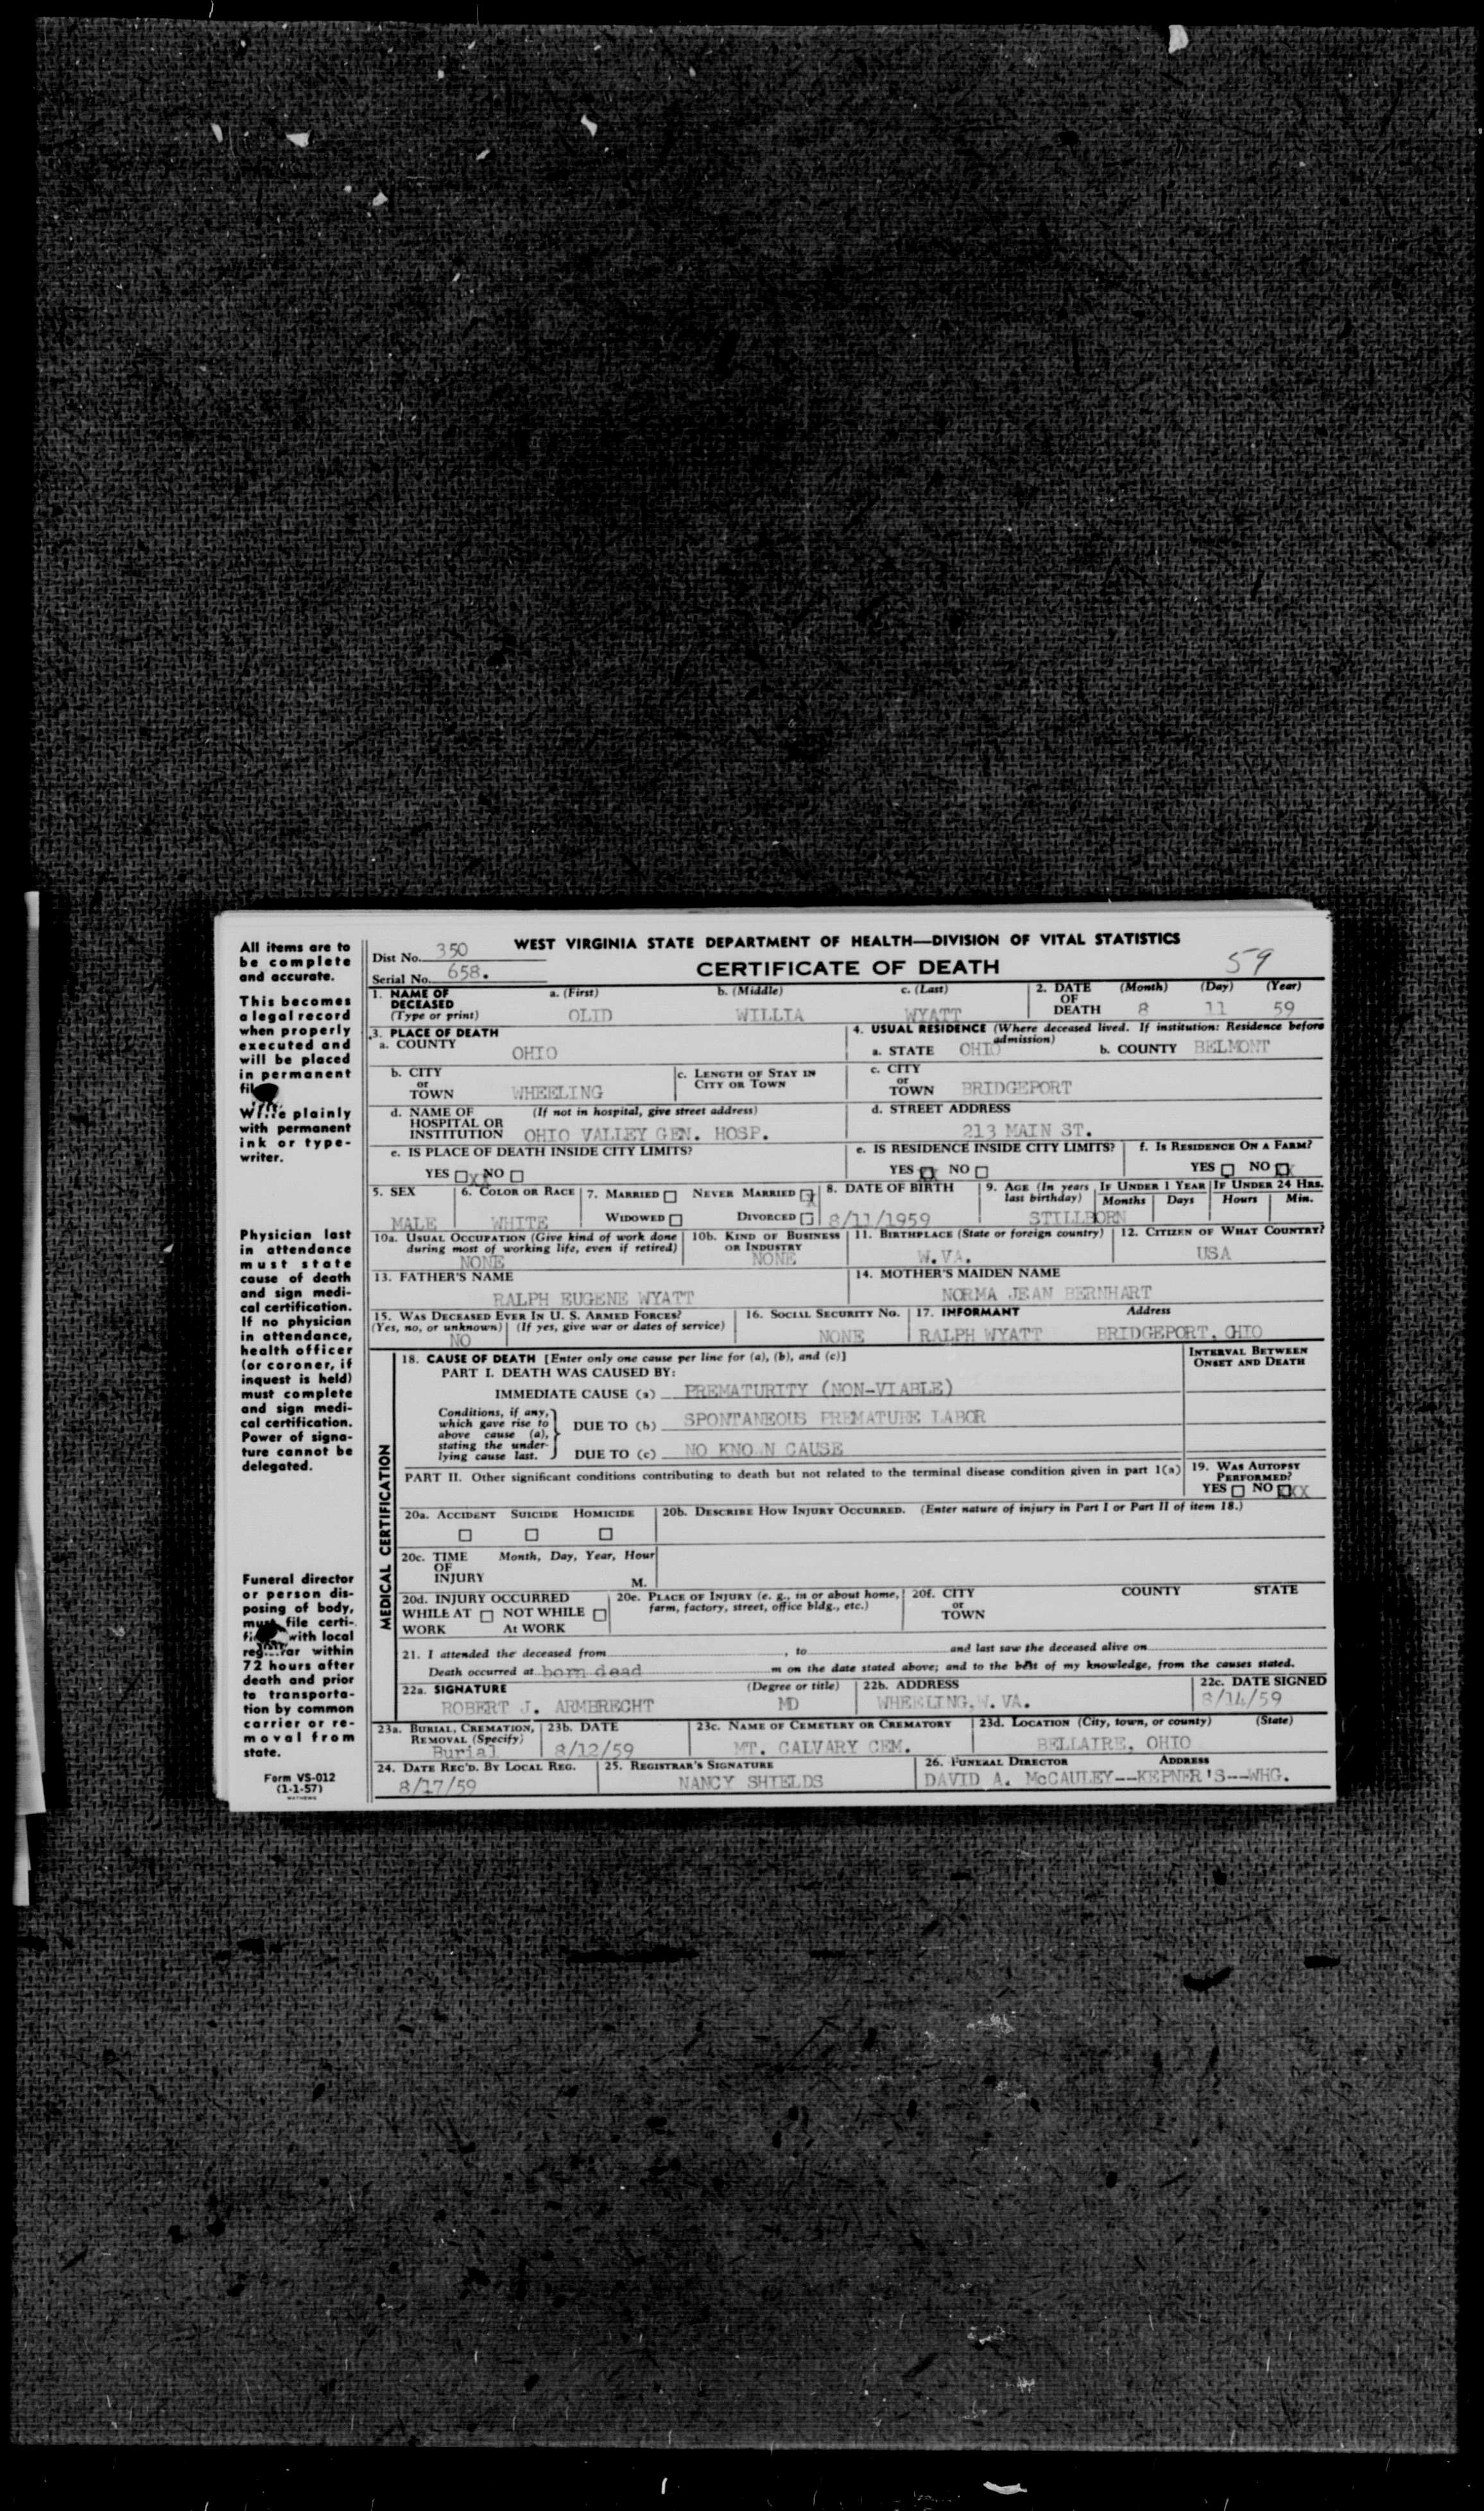 All items are to
be complete
and accurate.
This becomes
a legal record
when properly
executed and
will be placed
in permanent
Write plainly
with permanent
ink or type-
writer.
Physician last
in attendance
must state
cause of death
and sign medi-
cal certification.
If no physician
in attendance,
health officer
(or coroner, if
inquest is held)
must complete
and sign medi-
cal certification.
Power of signa-
ture cannot be
delegated.
Funeral director
or person dis-
posing of body,
must file certi-
with local
within
72 hours after
death and prior
to transporta-
tion by common
carrier or re-
moval from
state.
Form VS-012
(1-1-57)
MATHEWS
WEST VIRGINIA STATE DEPARTMENT OF HEALTH—DIVISION OF VITAL STATISTICS
Dist No. 350
Serial No. 658.
CERTIFICATE OF DEATH
59
1. NAME OF DECEASED (Type or print) a. (First) b. (Middle) c. (Last)
OLID WILLIA WYATT
2. DATE OF DEATH (Month) (Day) (Year)
8 11 59
3. PLACE OF DEATH
a. COUNTY OHIO
4. USUAL RESIDENCE (Where deceased lived. If institution: Residence before admission)
a. STATE OHIO b. COUNTY BELMONT
b. CITY or TOWN WHEELING
c. LENGTH OF STAY IN CITY OR TOWN
c. CITY or TOWN BRIDGEPORT
d. NAME OF HOSPITAL OR INSTITUTION (If not in hospital, give street address)
OHIO VALLEY GEN. HOSP.
d. STREET ADDRESS
213 MAIN ST.
e. IS PLACE OF DEATH INSIDE CITY LIMITS?
YES X NO
e. IS RESIDENCE INSIDE CITY LIMITS?
YES X NO
f. IS RESIDENCE ON A FARM?
YES NO X
5. SEX
MALE
6. COLOR OR RACE
WHITE
7. MARRIED NEVER MARRIED X
WIDOWED DIVORCED
8. DATE OF BIRTH
8/11/1959
9. AGE (In years last birthday) IF UNDER 1 YEAR IF UNDER 24 HRS.
Months Days Hours Min.
STILLBORN
10a. USUAL OCCUPATION (Give kind of work done during most of working life, even if retired)
NONE
10b. KIND OF BUSINESS OR INDUSTRY
NONE
11. BIRTHPLACE (State or foreign country)
W. VA.
12. CITIZEN OF WHAT COUNTRY?
USA
13. FATHER'S NAME
RALPH EUGENE WYATT
14. MOTHER'S MAIDEN NAME
NORMA JEAN BERNHART
15. WAS DECEASED EVER IN U. S. ARMED FORCES?
(Yes, no, or unknown) (If yes, give war or dates of service)
NO
16. SOCIAL SECURITY NO.
NONE
17. INFORMANT Address
RALPH WYATT BRIDGEPORT, OHIO
MEDICAL CERTIFICATION
18. CAUSE OF DEATH [Enter only one cause per line for (a), (b), and (c)]
INTERVAL BETWEEN ONSET AND DEATH
PART I. DEATH WAS CAUSED BY:
IMMEDIATE CAUSE (a) PREMATURITY (NON-VIABLE)
Conditions, if any, which gave rise to above cause (a), stating the under-lying cause last.
DUE TO (b) SPONTANEOUS PREMATURE LABOR
DUE TO (c) NO KNO N CAUSE
PART II. Other significant conditions contributing to death but not related to the terminal disease condition given in part I(a)
19. WAS AUTOPSY PERFORMED?
YES NO XXX
20a. ACCIDENT SUICIDE HOMICIDE
20b. DESCRIBE HOW INJURY OCCURRED. (Enter nature of injury in Part I or Part II of item 18.)
20c. TIME OF INJURY Month, Day, Year, Hour
M.
20d. INJURY OCCURRED
WHILE AT WORK NOT WHILE At WORK
20e. PLACE OF INJURY (e. g., in or about home, farm, factory, street, office bldg., etc.)
20f. CITY or TOWN COUNTY STATE
21. I attended the deceased from , to and last saw the deceased alive on
Death occurred at born dead m on the date stated above; and to the best of my knowledge, from the causes stated.
22a. SIGNATURE (Degree or title)
ROBERT J. ARMBRECHT MD
22b. ADDRESS
WHEELING, W. VA.
22c. DATE SIGNED
8/14/59
23a. BURIAL, CREMATION, REMOVAL (Specify)
Burial
23b. DATE
8/12/59
23c. NAME OF CEMETERY OR CREMATORY
MT. CALVARY CEM.
23d. LOCATION (City, town, or county) (State)
BELLAIRE, OHIO
24. DATE REC'D. BY LOCAL REG.
8/17/59
25. REGISTRAR'S SIGNATURE
NANCY SHIELDS
26. FUNERAL DIRECTOR ADDRESS
DAVID A. McCAULEY--KEPNER'S--WHG.